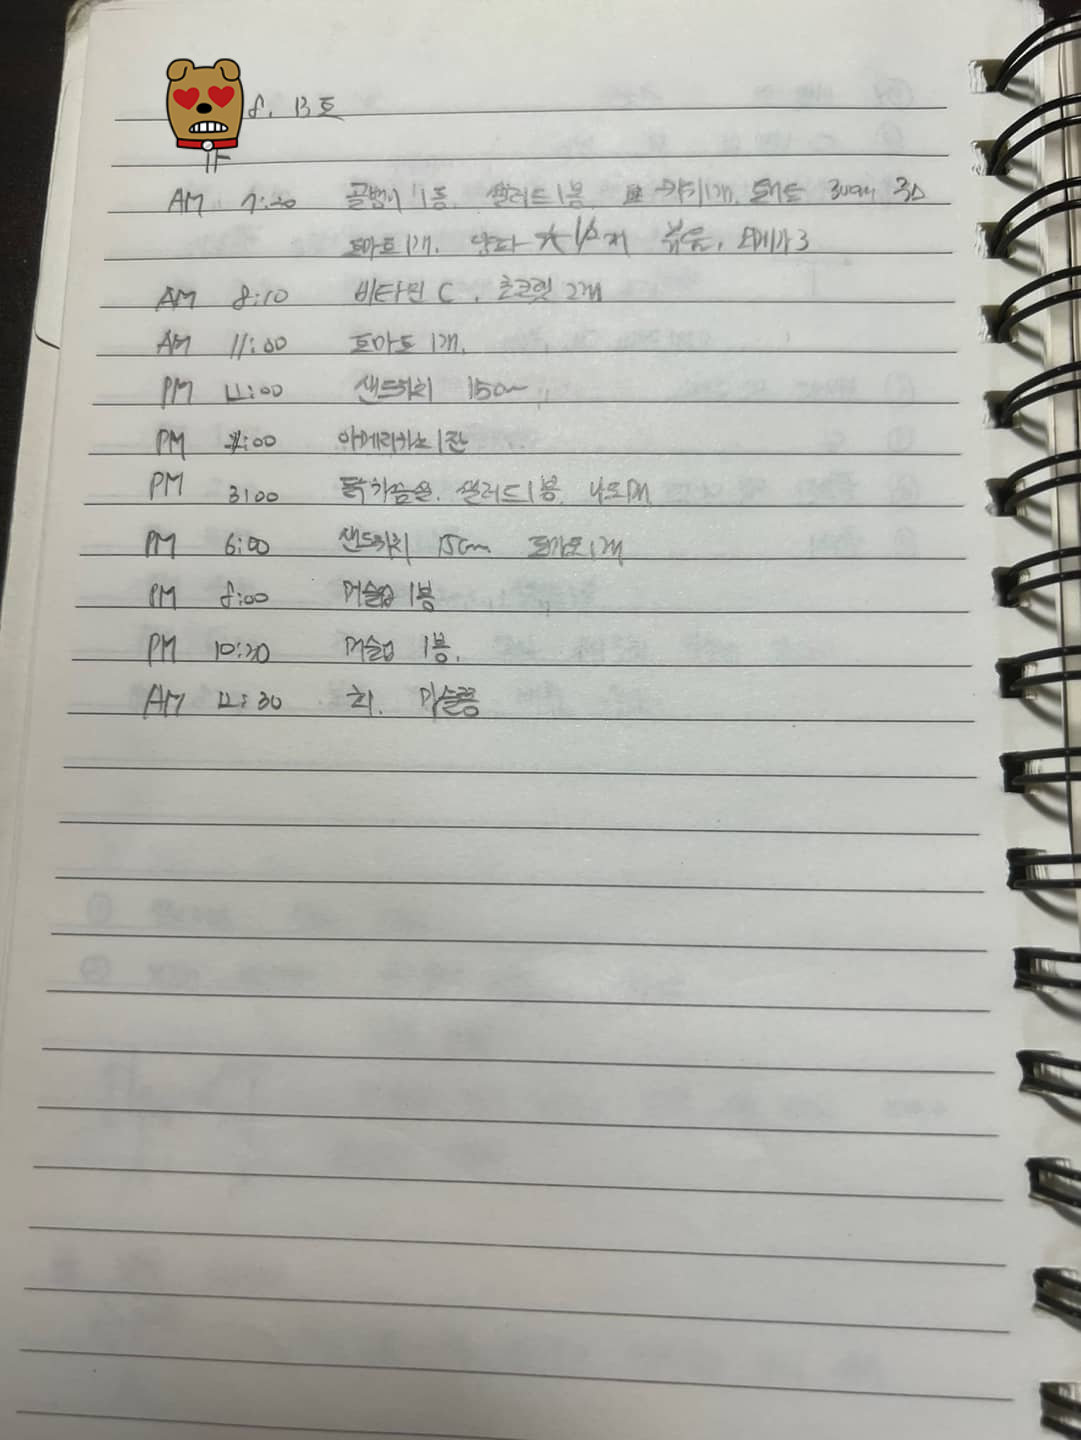 8. 13 토
AM 7:20 골뱅이 1통. 샐러드 1봉. 키위 1개. 30g 3스
토마토 1개. 양파 1/2개 볶음. 오메가3
AM 8:10 비타민 C. 초코릿 2개
AM 11:00 토마토 1개.
PM 12:00 샌드위치 15cm
PM 1:00 아메리카노 1잔
PM 3:00 닭가슴살. 샐러드 1봉.
PM 6:00 샌드위치 15cm 토마토 1개
PM 8:00 머슬업 1봉
PM 10:30 머슬업 1봉.
AM 12:30 회.